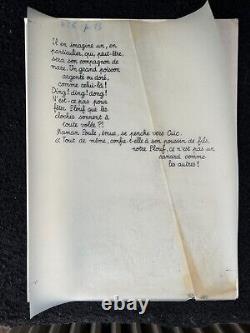 Il en imagine un, en
particulier, qui, peut-être,
sera son compagnon de
mare. Un grand poisson
argenté ou doré,
comme celui-là !
Ding ! ding ! dong !
N'est-ce pas pour
fêter Plouf que les
cloches sonnent à
toute volée ?!
Maman Poule, émue, se penche vers Cuic.
« Tout de même, confie-t-elle à son poussin de fils,
notre Plouf, ce n'est pas un
canard comme
les autres !